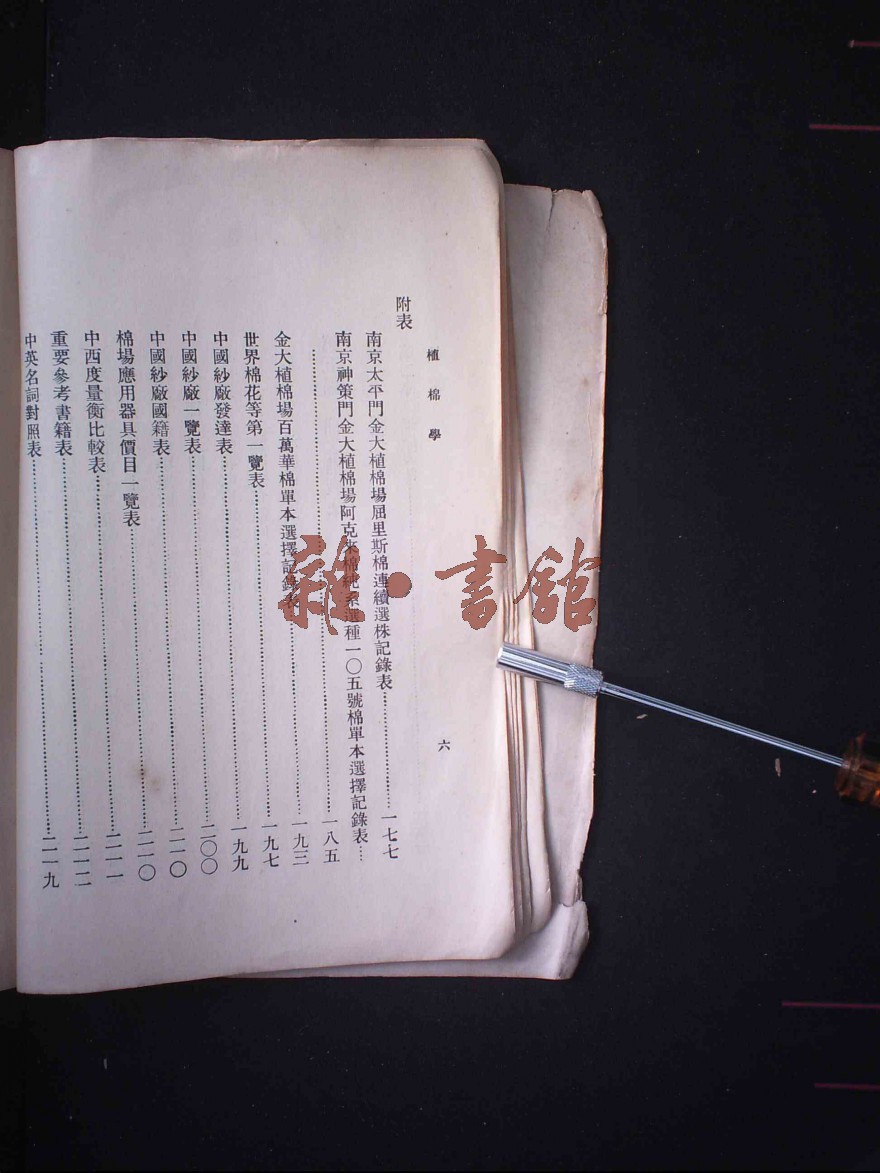 植棉學 六
附表
南京太平門金大植棉場屈里斯棉連續選株記錄表……………一七七
南京神策門金大植棉場阿克來棉純系選種一〇五號棉單本選擇記錄表……
……………………………………一八五
金大植棉場百萬華棉單本選擇記錄表……………一九三
世界棉花等第一覽表……………一九七
中國紗廠發達表……………一九九
中國紗廠一覽表……………二〇〇
中國紗廠國籍表……………二一〇
棉場應用器具價目一覽表……………二一〇
中西度量衡比較表……………二一一
重要參考書籍表……………二一二
中英名詞對照表……………二一九
雜·書館